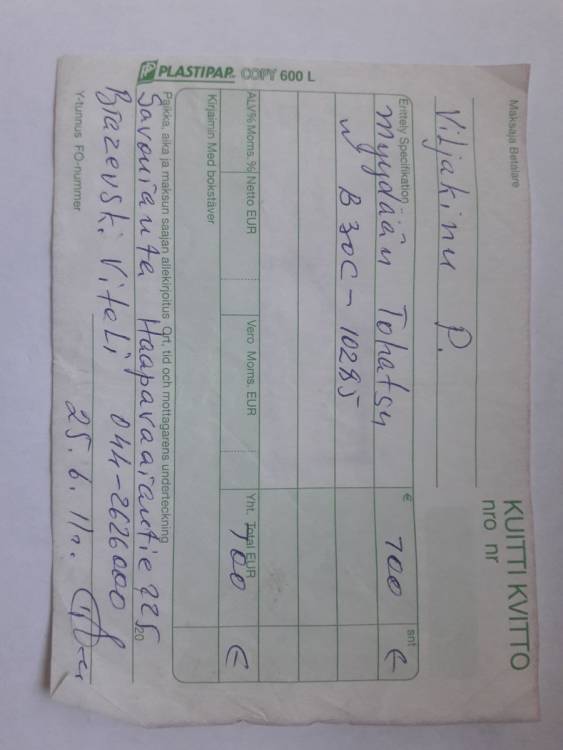 KUITTI KVITTO
nro nr
Maksaja Betalare
Viljakinu P.
Erittely Specification € snt
Myydään Tohatsu 700 €
N B30C-10285
ALV% Moms.% Netto EUR Vero Moms. EUR Yht. Total EUR
700 €
Kirjaimin Med bokstäver
Paikka, aika ja maksun saajan allekirjoitus Ort, tid och mottagarens underteckning 20
Savonranta Haapavaarantie 225
Brazevski Viteli 044-2626000
25.6.11
Y-tunnus FO-nummer
PLASTIPAP COPY 600 L